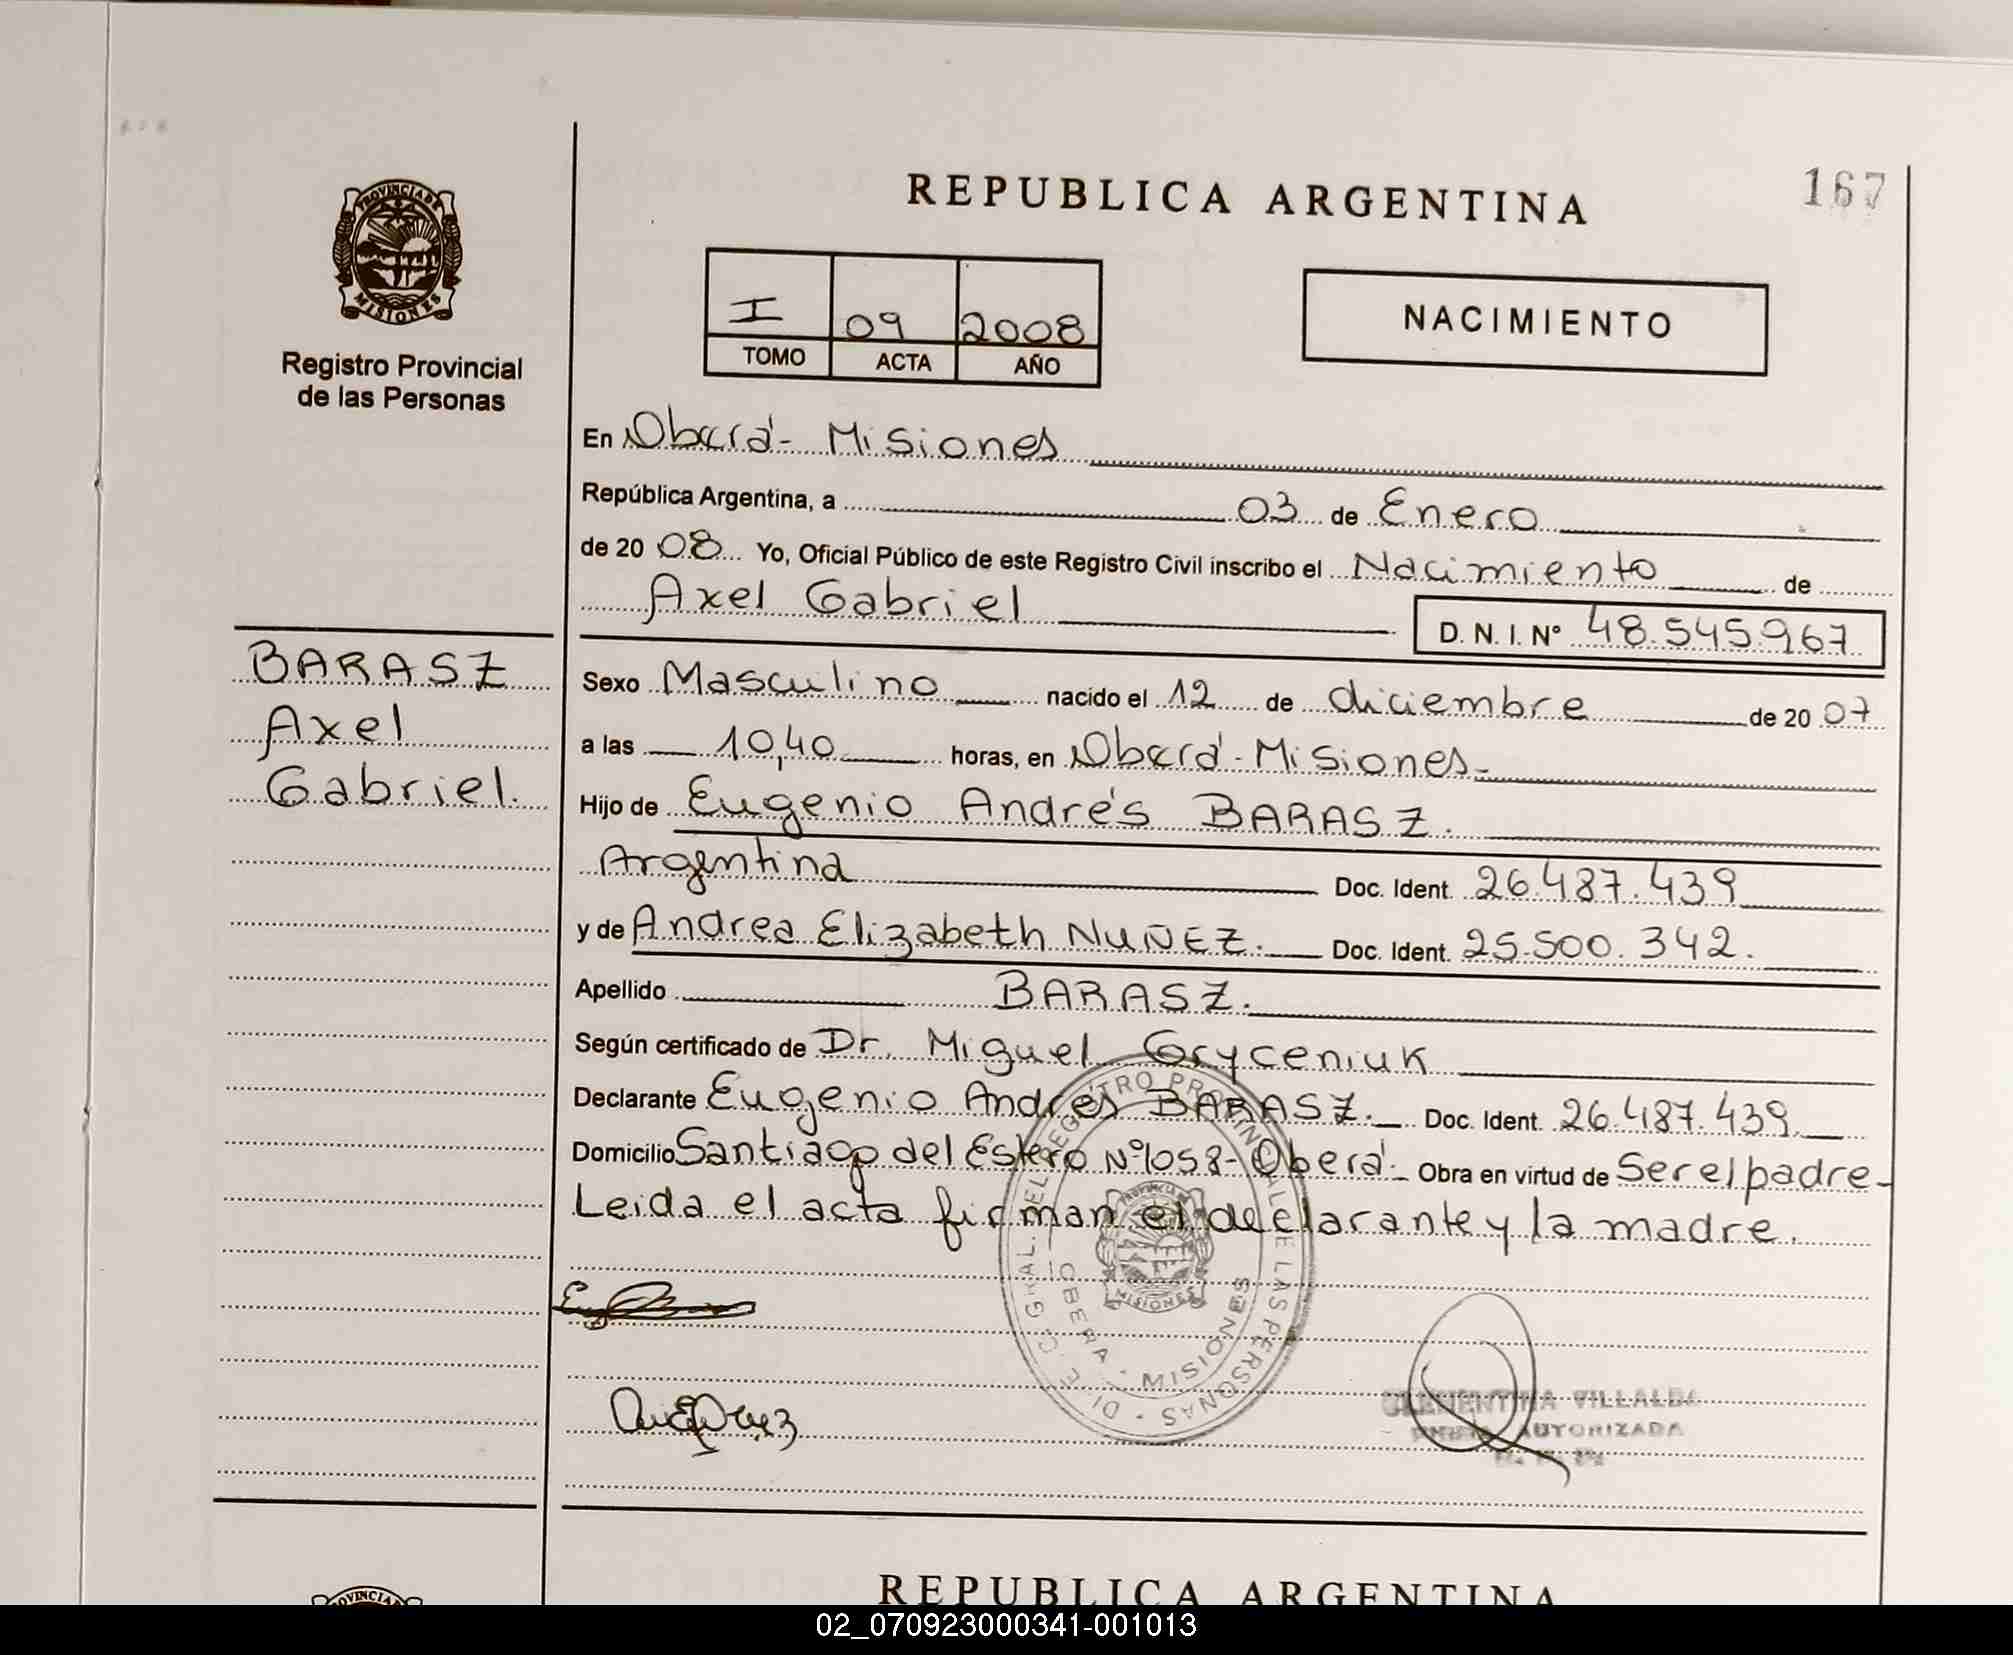 REPUBLICA ARGENTINA
167
PROVINCIA DE
MISIONES
Registro Provincial
de las Personas
I 09 2008
TOMO ACTA AÑO
NACIMIENTO
En Oberá - Misiones
República Argentina, a 03 de Enero
de 20 08 Yo, Oficial Público de este Registro Civil inscribo el Nacimiento de
Axel Gabriel
D. N. I. Nº 48.545.967
BARASZ
Axel
Gabriel.
Sexo Masculino nacido el 12 de diciembre de 20 07
a las 10,40 horas, en Oberá - Misiones -
Hijo de Eugenio Andrés BARASZ.
Argentina Doc. Ident. 26.487.439
y de Andrea Elizabeth NUÑEZ. Doc. Ident. 25.500.342.
Apellido BARASZ.
Según certificado de Dr. Miguel Gryceniuk
Declarante Eugenio Andrés BARASZ. Doc. Ident. 26.487.439
Domicilio Santiago del Estero Nº1058 - Oberá - Obra en virtud de Ser el padre -
Leida el acta firman el declarante y la madre.
DIREC. GRAL. EL REGISTRO PROVINCIAL DE LAS PERSONAS
OBERA - MISIONES
PROVINCIA DE
MISIONES
CLEMENTINA VILLALBA
AUTORIZADA
REPUBLICA ARGENTINA
02_070923000341-001013